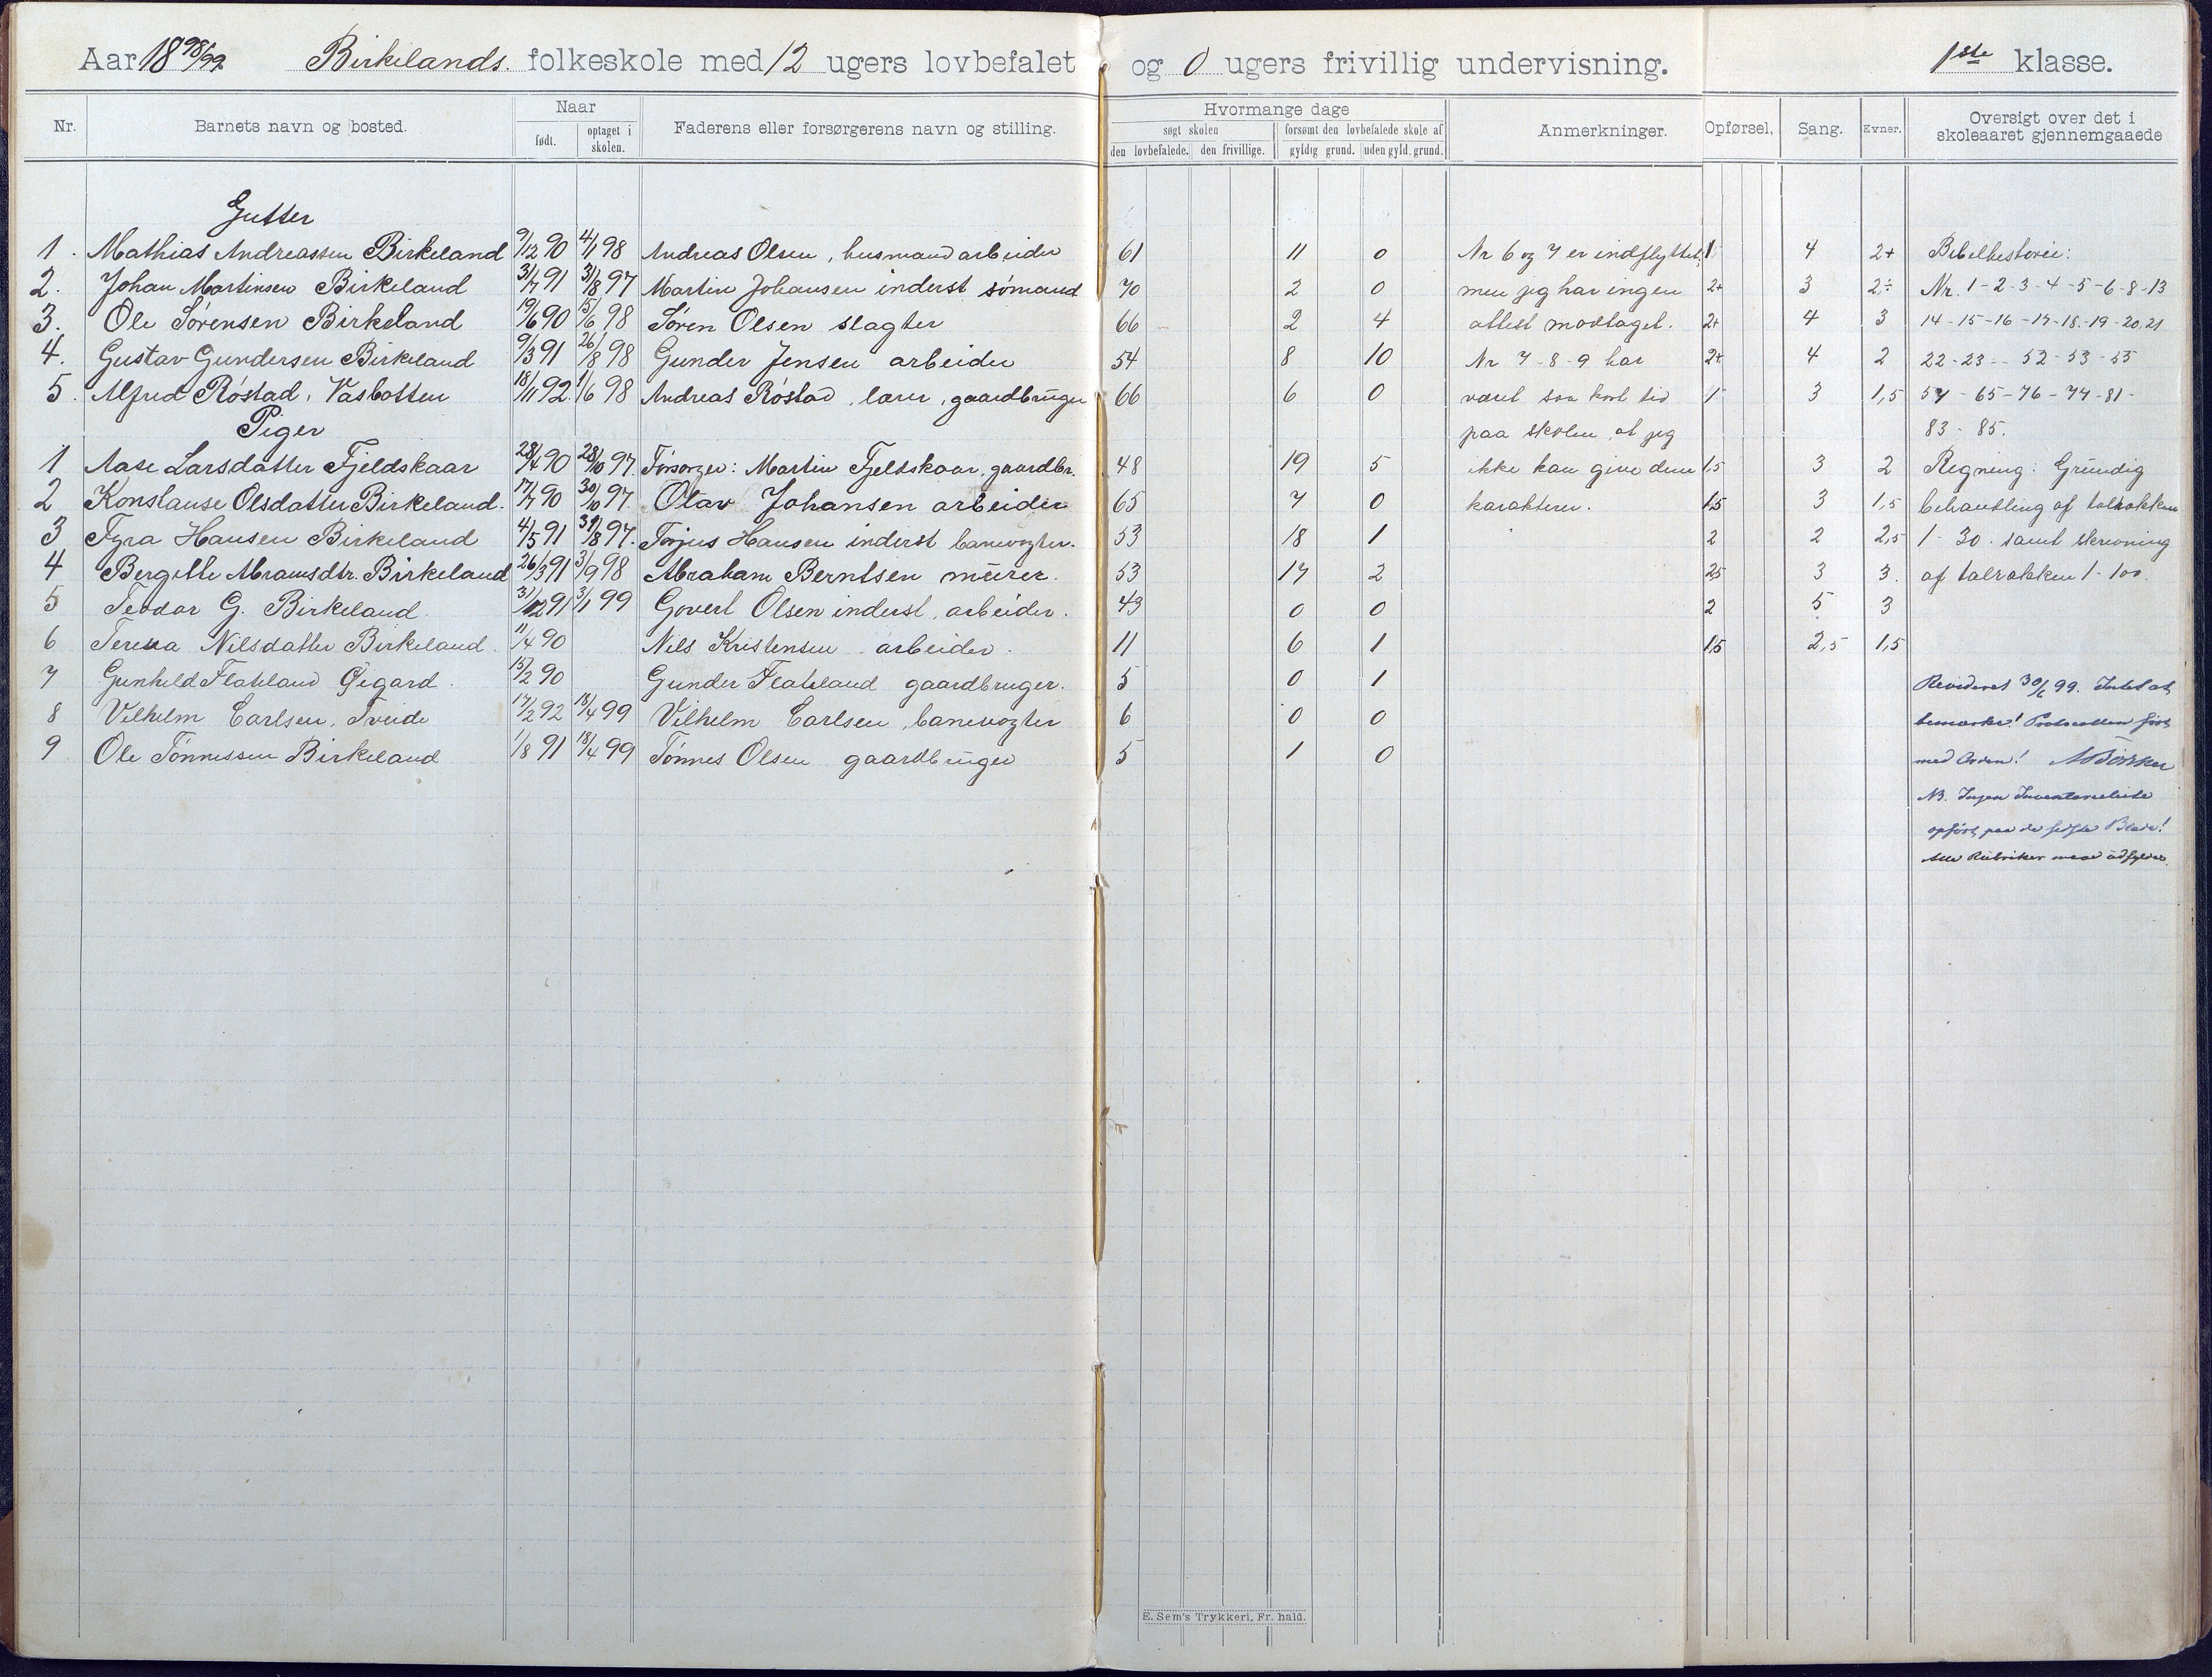 Aar 1898/99 Birkelands. folkeskole med 12 ugers lovbefalet og 0 ugers frivillig undervisning. 1ste klasse.
Nr. Barnets navn og bosted. Naar født. optaget i skolen. Faderens eller forsørgerens navn og stilling. Hvormange dage søgt skolen den lovbefalede. den frivillige. forsømt den lovbefalede skole af gyldig grund. uden gyld. grund. Anmerkninger. Opførsel, Sang. Evner. Oversigt over det i skoleaaret gjennemgaaede
Gutter
1. Mathias Andreassen Birkeland 9/12 90 4/1 98 Andreas Olsen, husmand arbeider 61 11 0 Nr 6 og 7 er indflyttet, 1 4 2+ Bibelhistorie:
2. Johan Martinsen Birkeland 31/7 91 31/8 97 Martin Johansen inderst sømand 70 2 0 men jeg har ingen 2+ 3 2÷ Nr. 1-2-3-4-5-6-8-13
3. Ole Sørensen Birkeland 19/6 90 15/6 98 Søren Olsen slagter 66 2 4 attest modtaget. 2+ 4 3 14-15-16-17-18-19-20.21
4. Gustav Gundersen Birkeland 9/3 91 26/8 98 Gunder Jensen arbeider 54 8 10 Nr 7-8-9 har 2+ 4 2 22-23-- 52-53-55
5. Alfred Røstad, Vasbotten 18/11 92. 1/6 98 Andreas Røstad, lærer, gaardbruger 66 6 0 været saa kort tid 1 3 1,5 57-65-76-77-81-
Piger paa skolen, at jeg 83-85.
1 Aase Larsdatter Fjeldskaar 28/4 90 28/10 97. Forsørger: Martin Fjeldskaar, gaardbr. 48 19 5 ikke kan give dem 1,5 3 2 Regning: Grundig
2 Konstanse Olsdatter Birkeland. 17/7 90 30/10 97. Olav Johansen arbeider 65 7 0 karakterer. 1,5 3 1,5 behandling af talrækken
3 Fyra Hansen Birkeland 4/5 91 31/8 97. Torjus Hansen inderst banevogter. 53 18 1 2 2 2,5 1-30. samt skrivning
4 Bergitte Abramsdtr. Birkeland 26/3 91 3/9 98 Abraham Berntsen murer. 53 17 2 25 3 3. af talrækken 1-100.
5 Teodor G. Birkeland 31/12 91 3/1 99 Govert Olsen inderst, arbeider. 43 0 0 2 5 3
6 Teresa Nilsdatter Birkeland. 11/4 90 Nils Kristensen arbeider. 11 6 1 1,5 2,5 1,5
7 Gunhild Flateland Øigard. 15/2 90 Gunder Flateland gaardbruger. 5 0 1 Revideret 30/6 99. Intet at
8 Vilhelm Carlsen, Tveide 17/2 92 18/4 99 Vilhelm Carlsen, banevogter 6 0 0 bemærke! Protocollen ført
9 Ole Tønnessen Birkeland 1/8 91 18/4 99 Tønnes Olsen gaardbruger 5 1 0 med Orden!
NB. Ingen Inventarieliste
opført paa de sidste Blade!
Alle Rubriker maa udfyldes.
E. Sem's Trykkeri, Fr. hald.